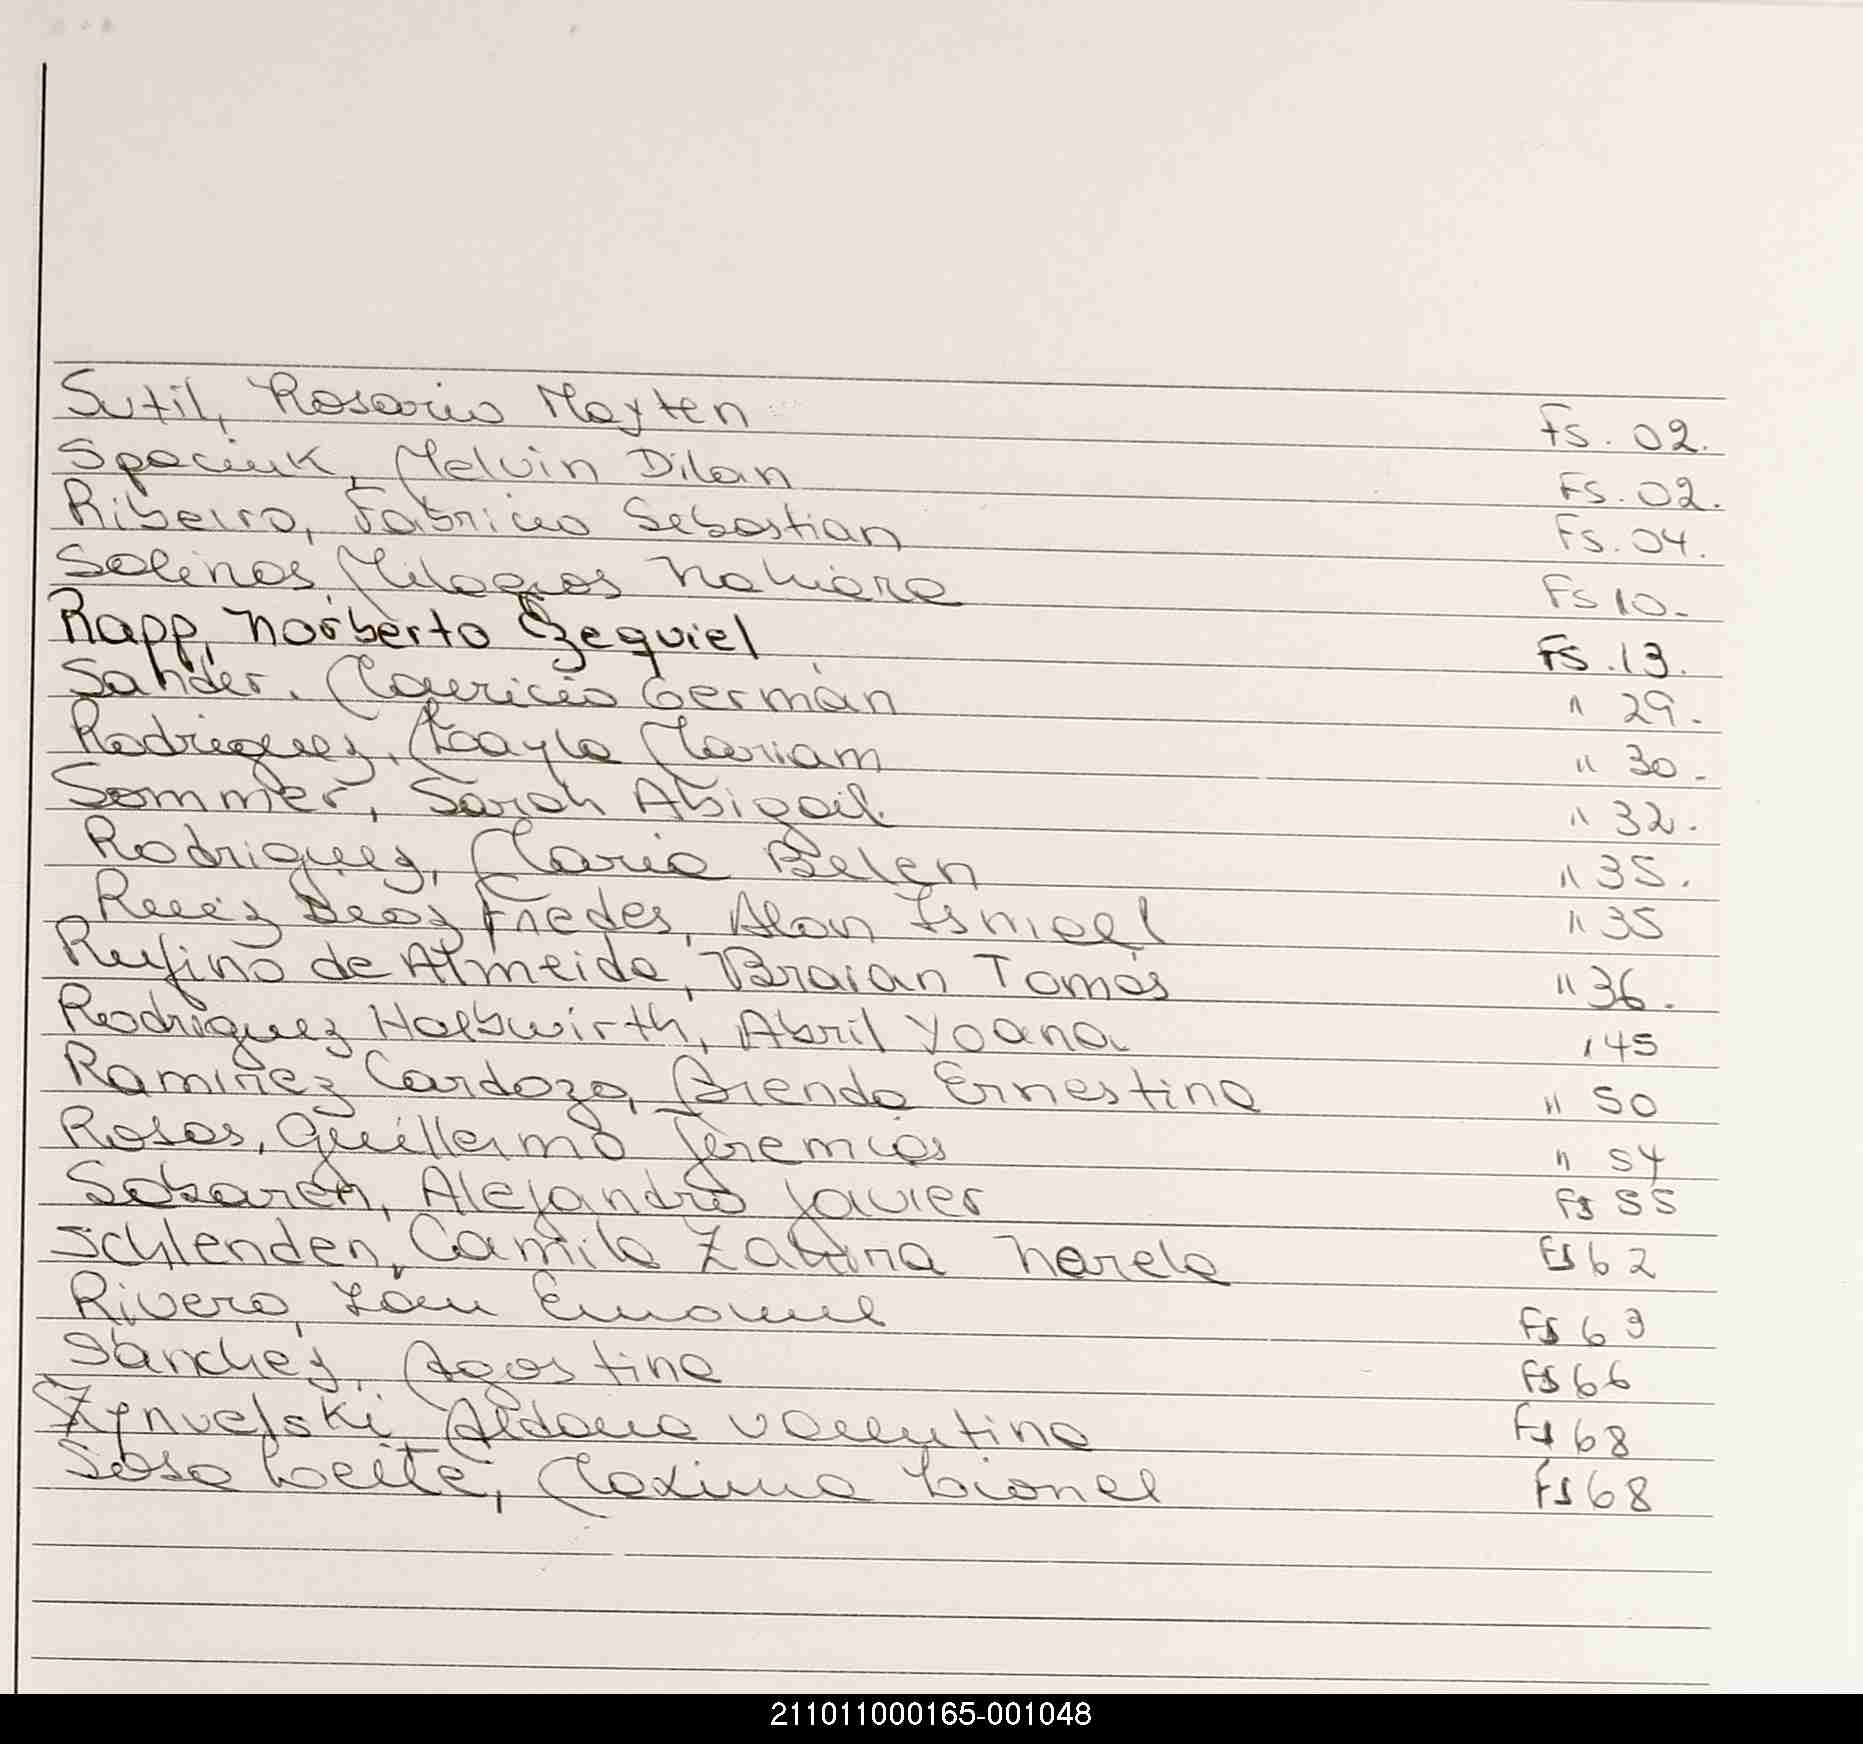 Sutil, Rosario Mayten Fs. 02.
Spaciuk, Melvin Dilan Fs. 02.
Ribeiro, Fabricio Sebastian Fs. 04.
Salinas, Milagros Nahiara Fs 10.
Rapp, Norberto Ezequiel Fs. 13.
Sander, Mauricio Germán " 29.
Rodriguez, Kayla Mariam " 30.
Sommer, Sarah Abigail " 32.
Rodriguez, Maria Belen " 35.
Ruiz Diaz Fredes, Alan Ismael " 35
Rufino de Almeida, Braian Tomás " 36.
Rodriguez Halbwirth, Abril Yoana , 45
Ramirez Cardozo, Brenda Ernestina " 50
Rosas, Guillermo Jeremias " 54
Sobaren, Alejandro Javier Fs 55
Schlenden, Camila Nerela Fs 62
Rivero, Ian Emanuel Fs 63
Sánchez, Agostina Fs 66
Aldana Valentina Fs 68
Sosa Leite, Maximo Lionel Fs 68
211011000165-001048